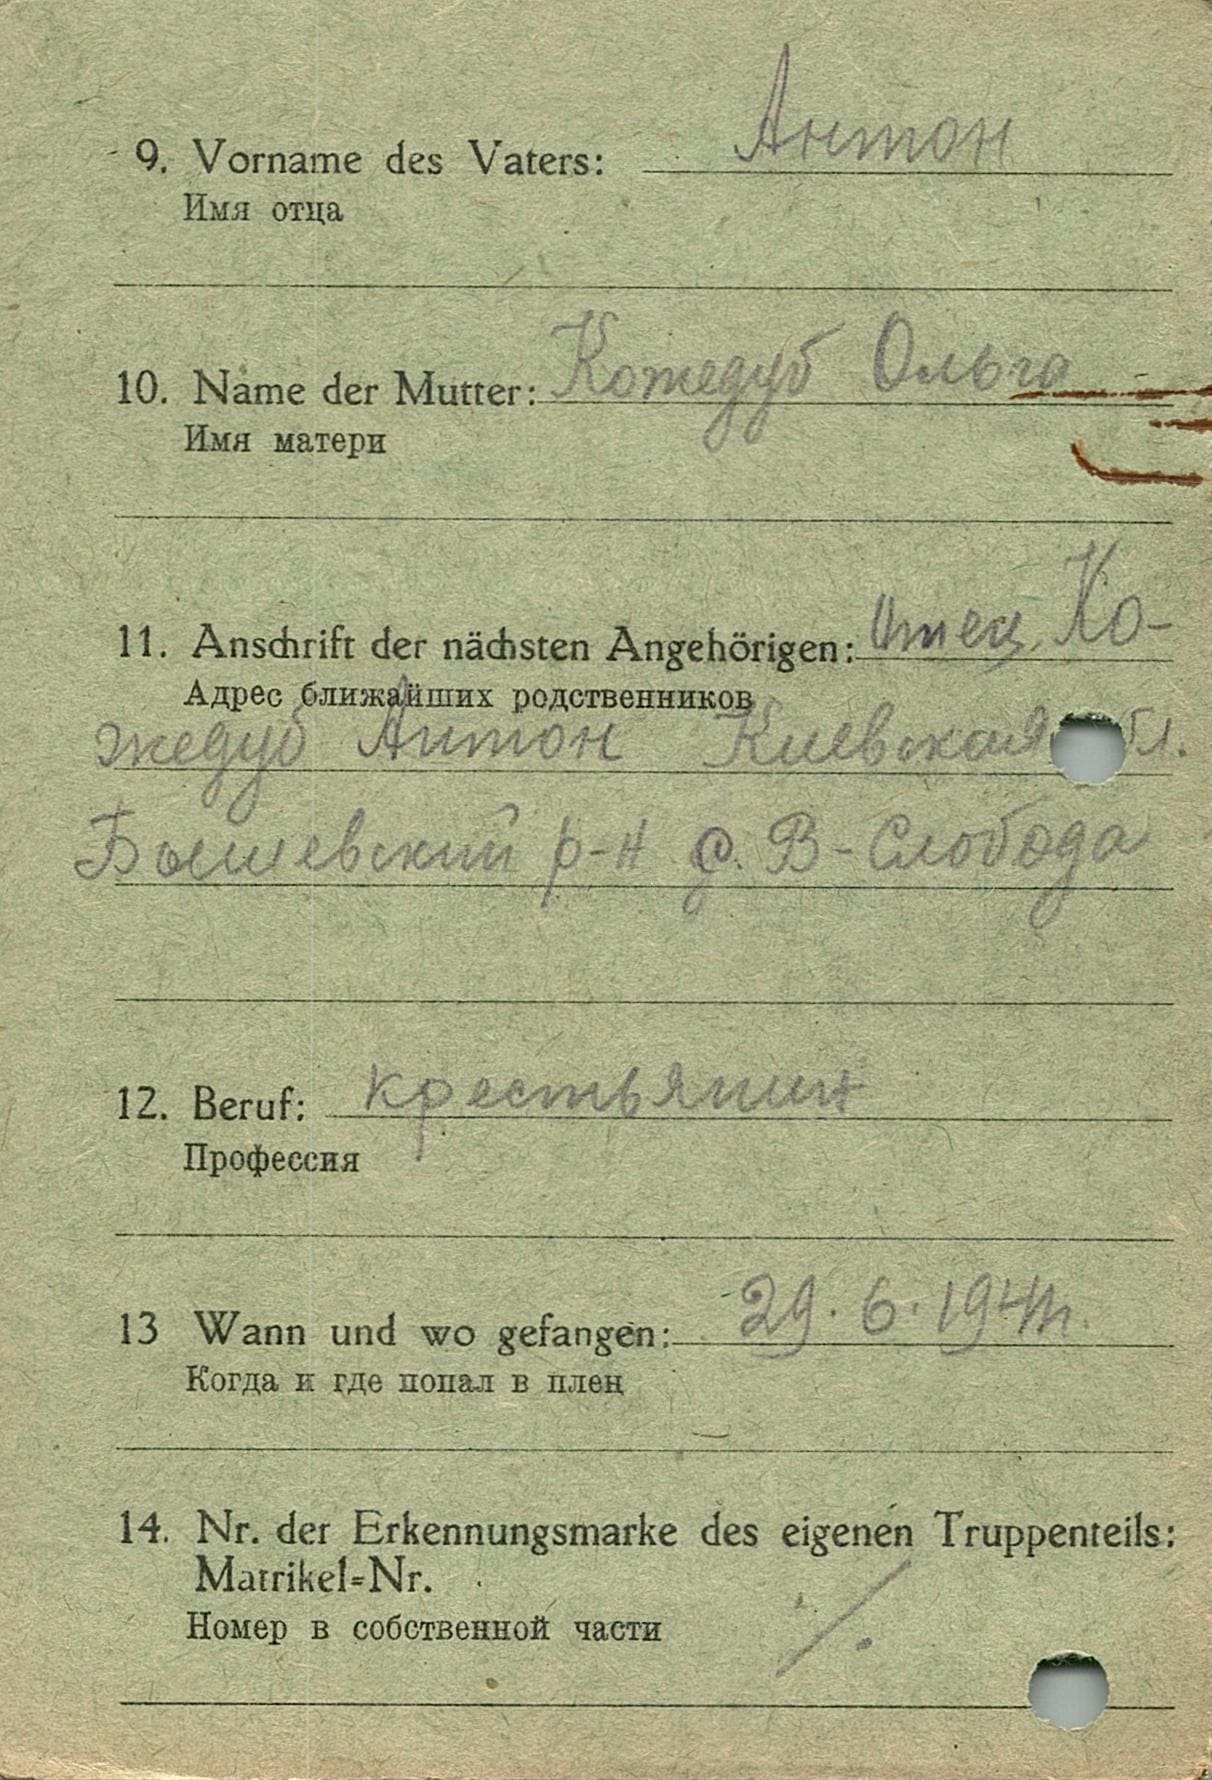 9. Vorname des Vaters: Антон
Имя отца
10. Name der Mutter: Кожедуб Ольга
Имя матери
11. Anschrift der nächsten Angehörigen: Отец Ко-
Адрес ближайших родственников
жедуб Антон Киевская обл.
Бышевский р-н с. В-Слобода
12. Beruf: крестьянин
Профессия
13 Wann und wo gefangen: 29.6.1941
Когда и где попал в плен
14. Nr. der Erkennungsmarke des eigenen Truppenteils:
Matrikel=Nr.
Номер в собственной части ./.